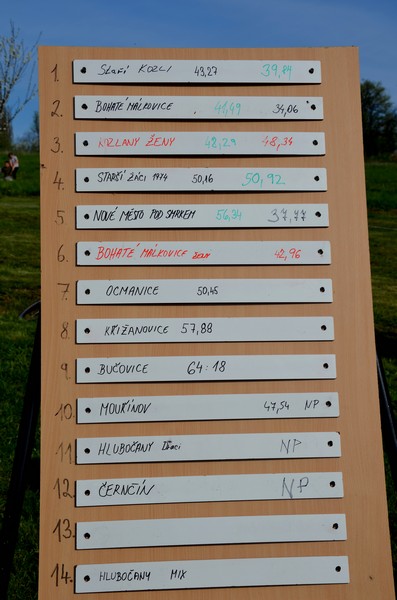 1. Staří KOZLI 43,27 39,84
2. BOHATÉ MÁLKOVICE 41,49 34,06
3. KOZLANY ŽENY 42,29 48,34
4. STARŠÍ ŽÁCI 1974 50,16 50,92
5 NOVÉ MĚSTO POD SMRKEM 56,34 37,77
6. BOHATÉ MÁLKOVICE ŽENY 42,96
7. OCMANICE 50,45
8. KŘIŽANOVICE 57,88
9. BUČOVICE 64:18
10. MOUŘÍNOV 47,54 NP
11. HLUBOČANY NP
12. ČERNČÍN NP
13.
14. HLUBOČANY MIX